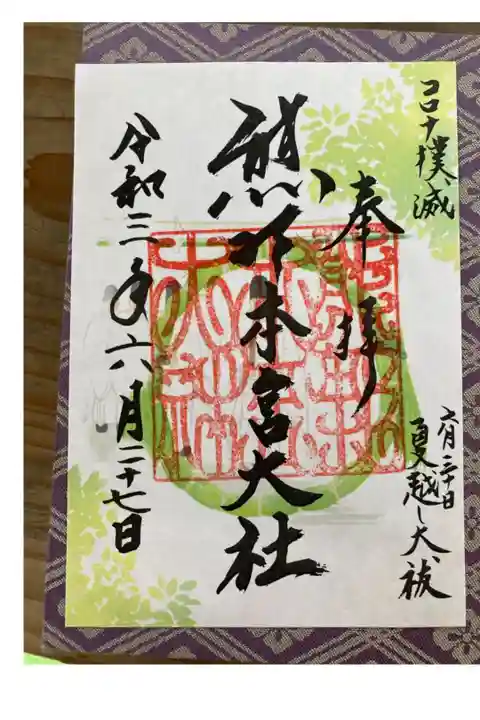 コロナ撲滅
奉拝
六月三十日
夏越し大祓
熊野本宮大社
令和三年六月二十七日